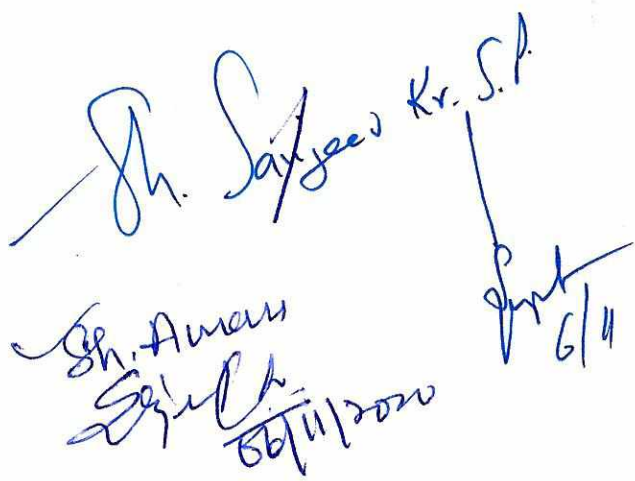 Sh. Sanjeev Kr. S.P.
6/11
Sh. Aman
06/11/2020